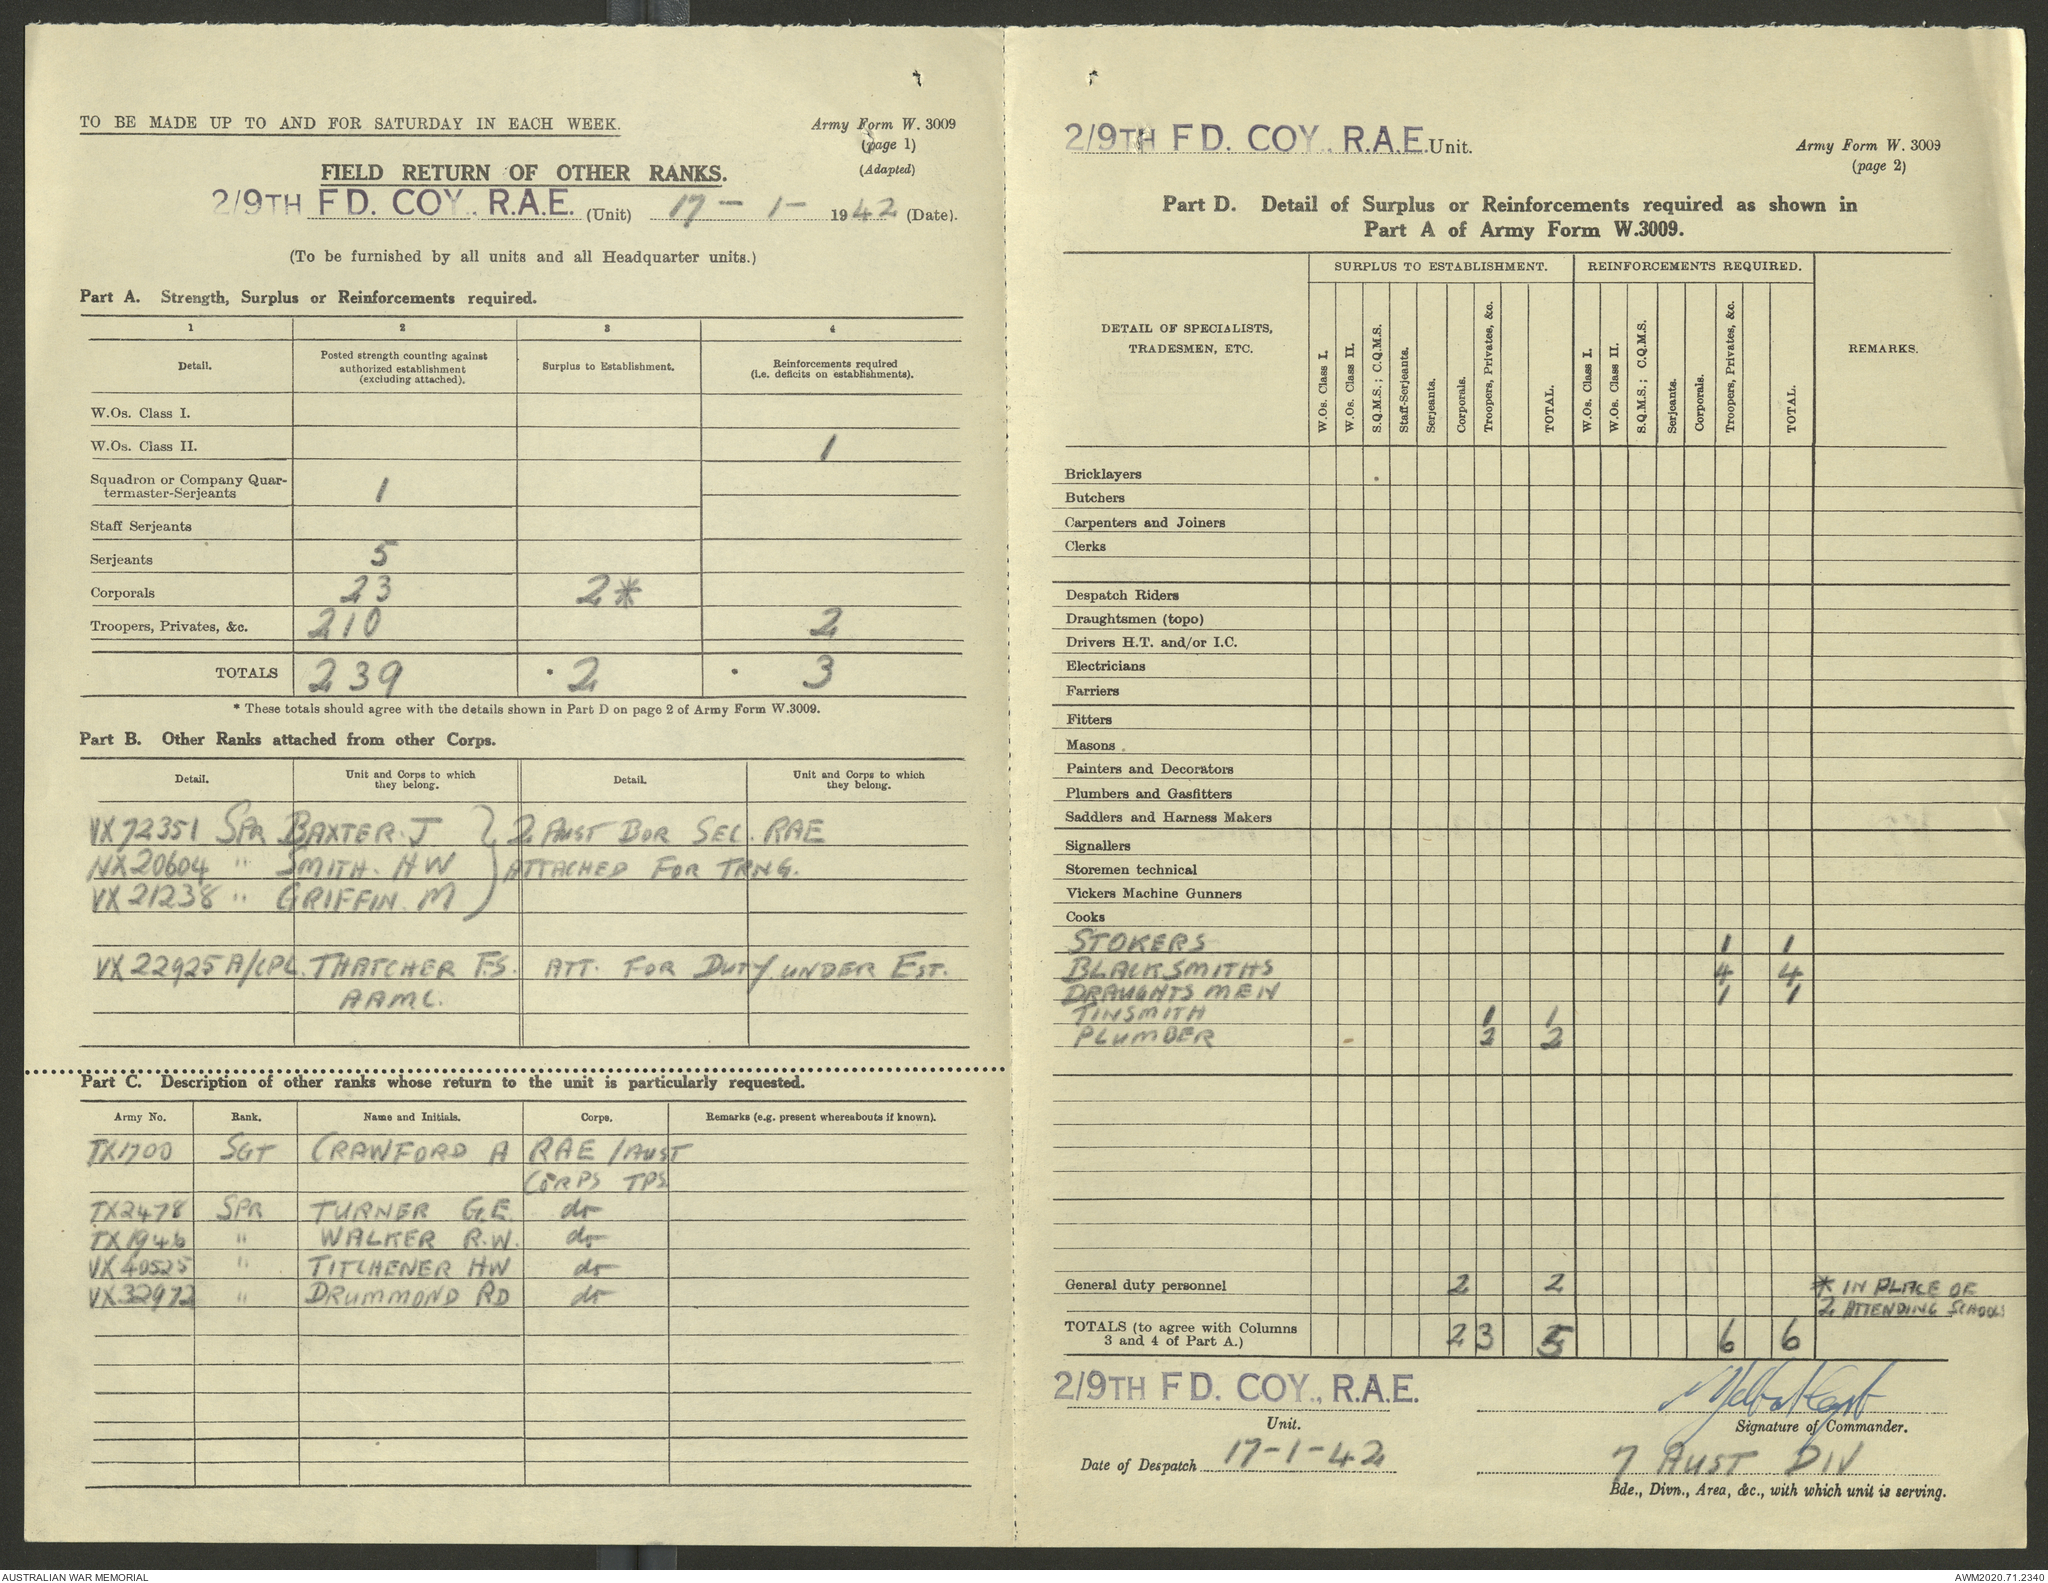 TO BE MADE UP TO AND FOR SATURDAY IN EACH WEEK.
Army Form W. 3009
(page 1)
(Adapted)
FIELD RETURN OF OTHER RANKS.
2/9TH FD. COY., R.A.E. (Unit) 17-1-1942 (Date).
(To be furnished by all units and all Headquarter units.)
Part A. Strength, Surplus or Reinforcements required.
1 2 3 4
Detail. Posted strength counting against authorized establishment (excluding attached). Surplus to Establishment. Reinforcements required (i.e. deficits on establishments).
W.Os. Class I.
W.Os. Class II. 1
Squadron or Company Quar-
termaster-Serjeants 1
Staff Serjeants
Serjeants 5
Corporals 23 2*
Troopers, Privates, &c. 210 2
TOTALS 239 2 3
* These totals should agree with the details shown in Part D on page 2 of Army Form W.3009.
Part B. Other Ranks attached from other Corps.
Detail. Unit and Corps to which they belong. Detail. Unit and Corps to which they belong.
VX72351 SPR BAXTER. J } 2 AUST BOR SEC. RAE
NX20604 " SMITH. HW ATTACHED FOR TRNG.
VX21238 " GRIFFIN. M
VX22925 A/CPL. THATCHER F.S. ATT. FOR DUTY UNDER EST.
AAMC.
Part C. Description of other ranks whose return to the unit is particularly requested.
Army No. Rank. Name and Initials. Corps. Remarks (e.g. present whereabouts if known).
TX1700 SGT CRAWFORD A RAE / AUST
CORPS TPS
TX2478 SPR TURNER G.E. do
TX1946 " WALKER R.W. do
VX40525 " TITCHENER HW do
VX32972 " DRUMMOND RD do
2/9TH FD. COY., R.A.E. Unit.
Army Form W. 3009
(page 2)
Part D. Detail of Surplus or Reinforcements required as shown in
Part A of Army Form W.3009.
SURPLUS TO ESTABLISHMENT. REINFORCEMENTS REQUIRED.
DETAIL OF SPECIALISTS, TRADESMEN, ETC. W.Os. Class I. W.Os. Class II. S.Q.M.S.; C.Q.M.S. Staff-Serjeants. Serjeants. Corporals. Troopers, Privates, &c. TOTAL. W.Os. Class I. W.Os. Class II. S.Q.M.S.; C.Q.M.S. Serjeants. Corporals. Troopers, Privates, &c. TOTAL. REMARKS.
Bricklayers
Butchers
Carpenters and Joiners
Clerks
Despatch Riders
Draughtsmen (topo)
Drivers H.T. and/or I.C.
Electricians
Farriers
Fitters
Masons
Painters and Decorators
Plumbers and Gasfitters
Saddlers and Harness Makers
Signallers
Storemen technical
Vickers Machine Gunners
Cooks
STOKERS 1 1
BLACKSMITHS 4 4
DRAUGHTSMEN 1 1
TINSMITH 1 1
PLUMBER 2 2
General duty personnel 2 2 * IN PLACE OF
2 ATTENDING SCHOOLS
TOTALS (to agree with Columns
3 and 4 of Part A.) 2 3 5 6 6
2/9TH FD. COY., R.A.E.
Unit.
Signature of Commander.
Date of Despatch 17-1-42
7 AUST DIV
Bde., Divn., Area, &c., with which unit is serving.
AUSTRALIAN WAR MEMORIAL
AWM2020.71.2340